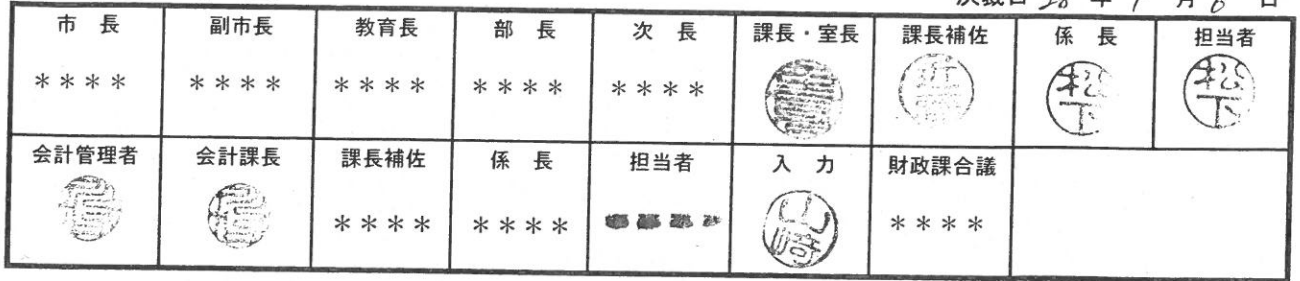 決裁日 28 年 9 月 6 日
市 長 副市長 教育長 部 長 次 長 課長・室長 課長補佐 係 長 担当者
＊＊＊＊ ＊＊＊＊ ＊＊＊＊ ＊＊＊＊ ＊＊＊＊ 松下 松下
会計管理者 会計課長 課長補佐 係 長 担当者 入 力 財政課合議
＊＊＊＊ ＊＊＊＊ 山崎 ＊＊＊＊